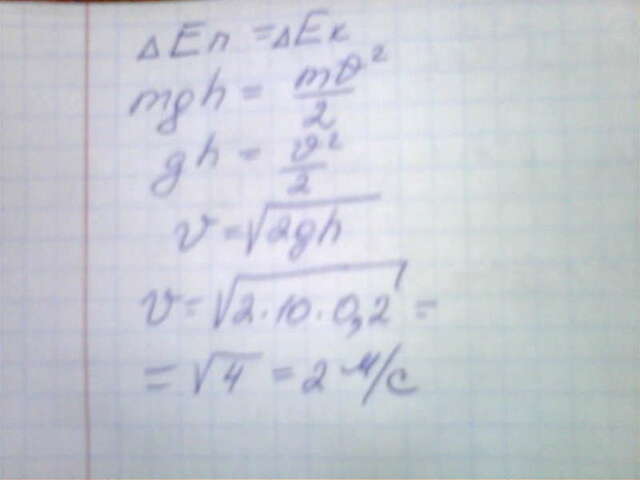 ΔEп = ΔEк
mgh = mυ²/2
gh = υ²/2
υ = √2gh
υ = √2·10·0,2 =
= √4 = 2 м/с